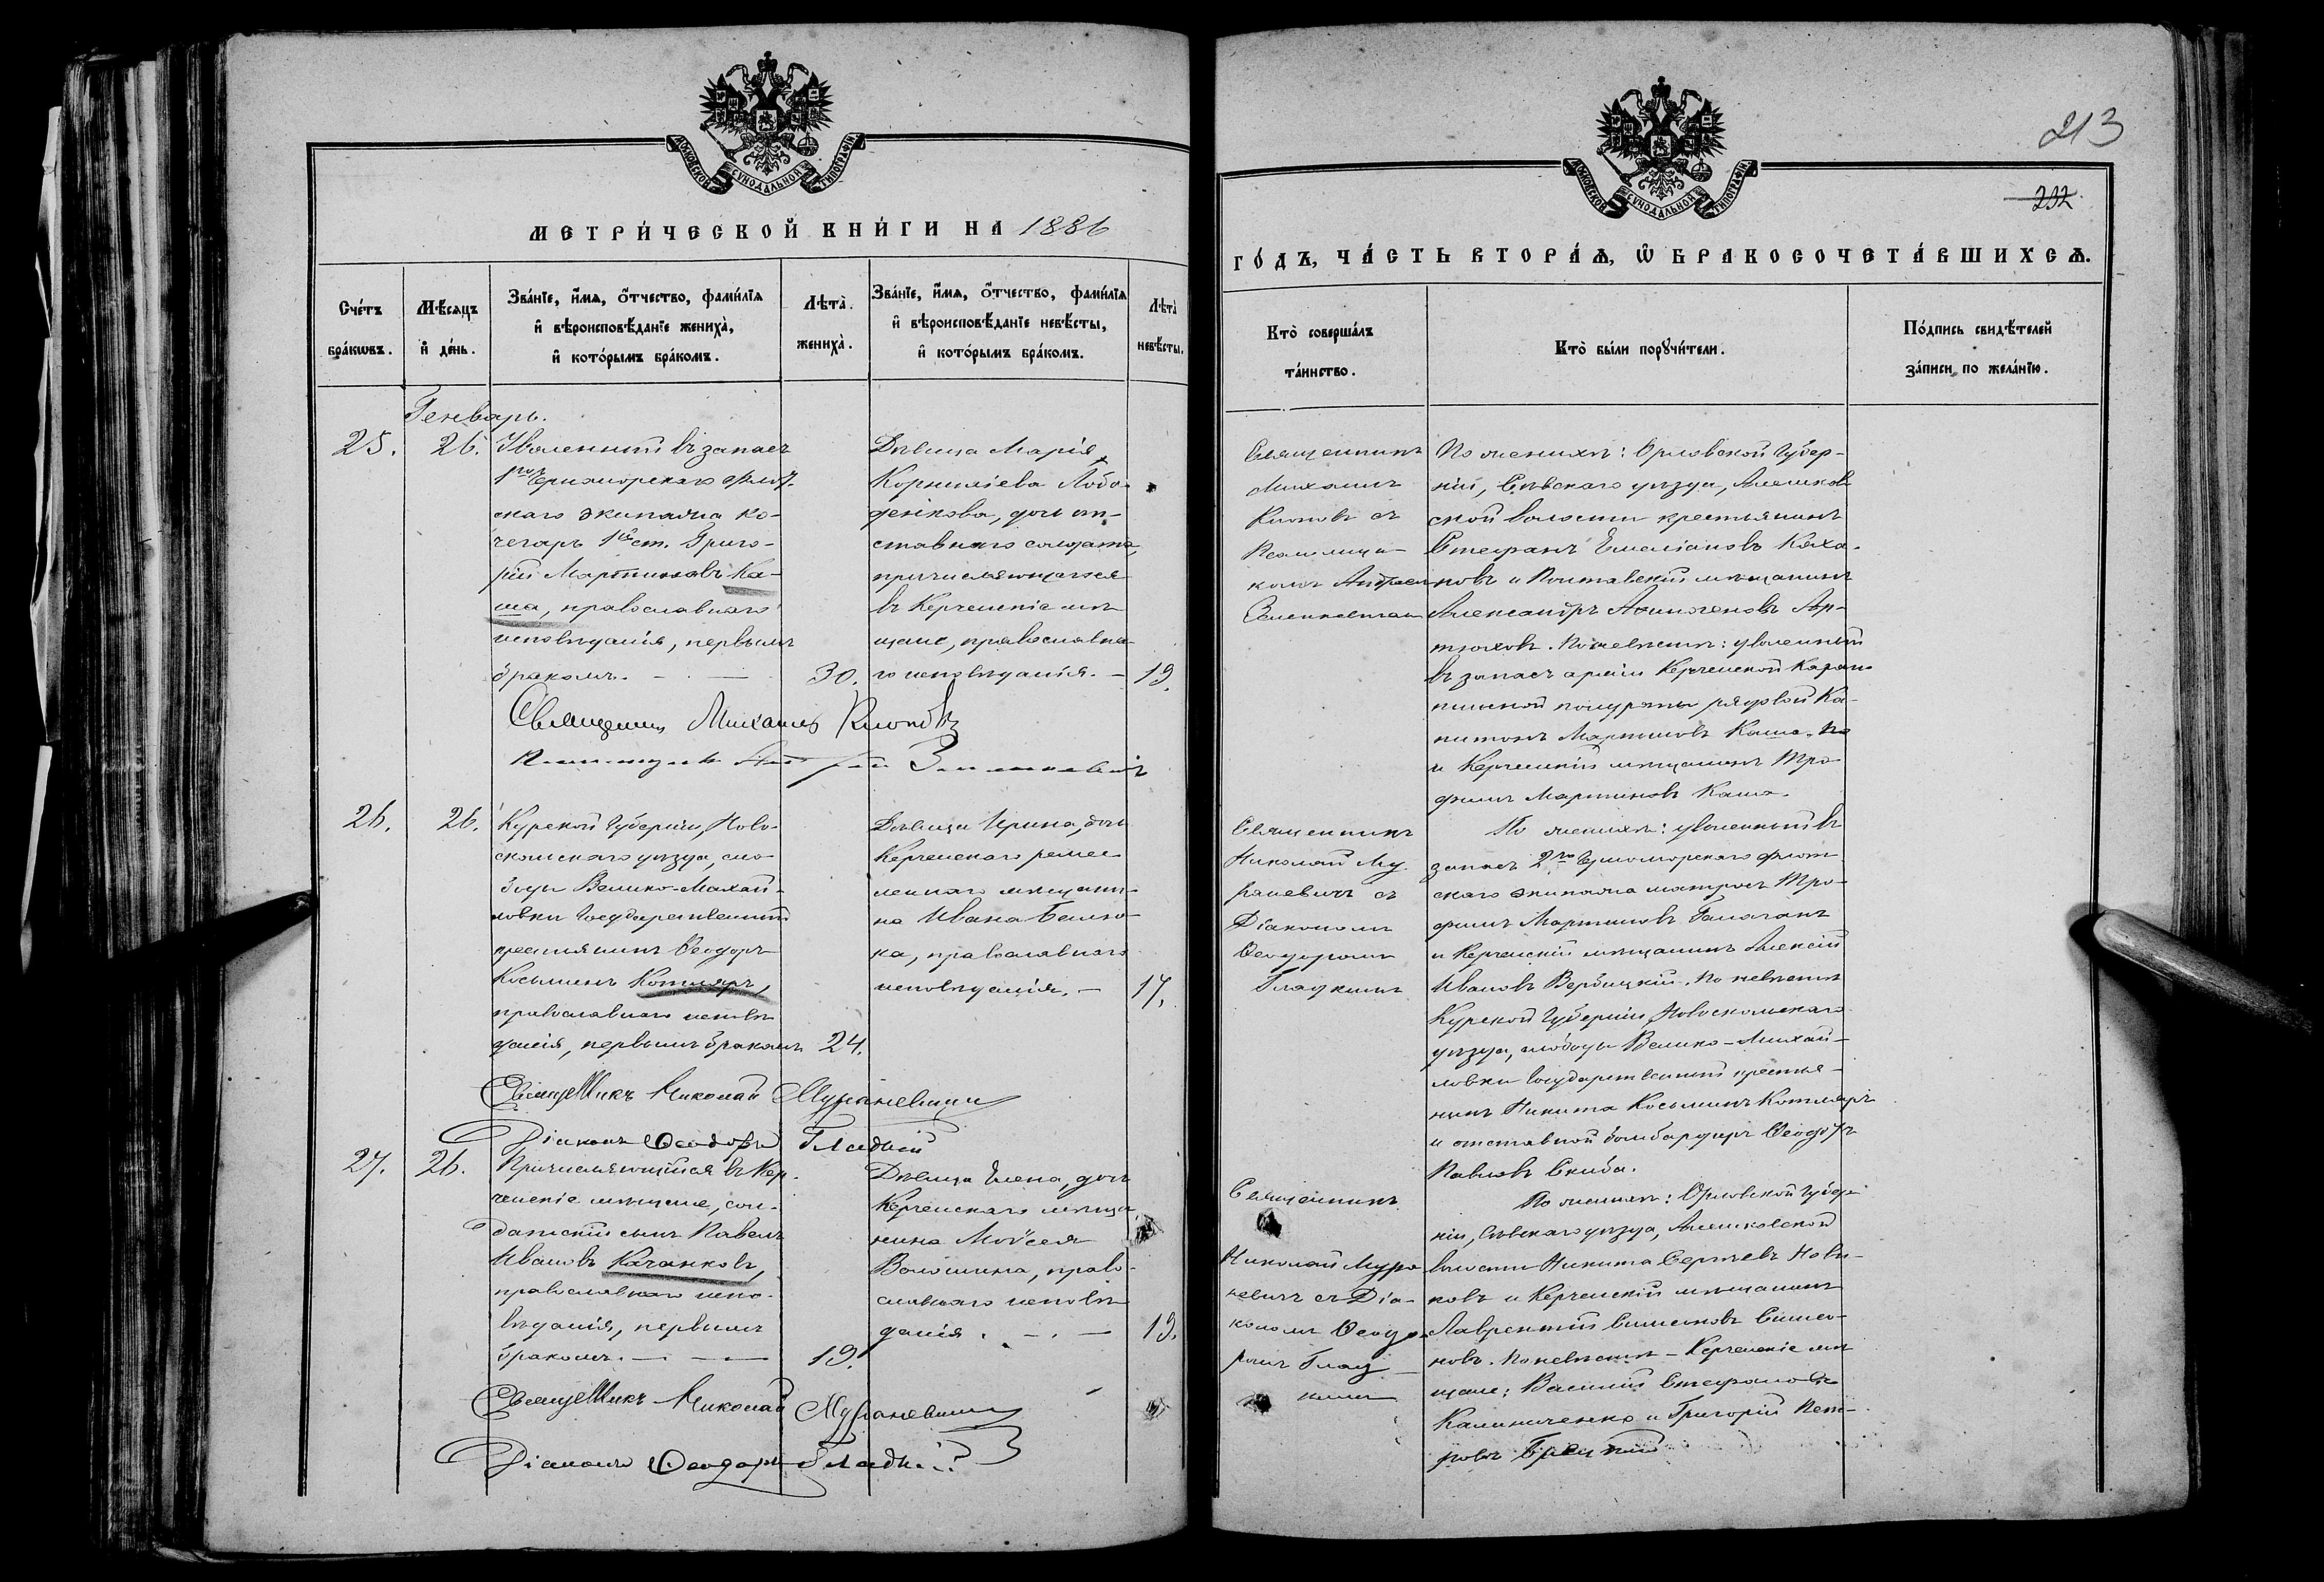 МОСКОВСКОЙ СѴНОДАЛЬНОЙ ТИПОГРАФІИ.
МЕТРИ́ЧЕСКОЙ КНИ́ГИ НА 1886
Сче́тъ бра́кωвъ.
Мѣ́сяцъ и҆ де́нь.
Зва́нїе, и҆́мя, ѻ҆́тчество, фами́лїя
и҆ вѣроисповѣ́данїе жениха̀,
и҆ кото́рымъ бра́комъ.
Лѣта̀. жениха̀.
Зва́нїе, и҆́мя, ѻ҆́тчество, фами́лїя
и҆ вѣроисповѣ́данїе невѣ́сты,
и҆ кото́рымъ бра́комъ.
Лѣта̀ невѣ́сты.
Генварь.
25. 26.
Уволенный въ запасъ
1го Черноморскаго флот-
скаго экипажа ко-
чегаръ 1й ст. Григо-
рій Мартиновъ Ка-
ша, православнаго
исповѣданія, первымъ
бракомъ. 30.
Дѣвица Марія
Корниліева Лобо-
денкова, дочь от-
ставнаго солдата,
причисляющагося
въ Керченскіе мѣ-
щане, православна-
го исповѣданія. 19.
Священникъ Михаилъ Клоповъ
Псаломщикъ Андрей Зеленкевичъ
26. 26.
Курской Губерніи, Ново-
скольскаго уѣзда, сло-
боды Велико-Михай-
ловки Государственный
крестьянинъ Ѳеодоръ
Косьминъ Котляръ,
православнаго исповѣ
данія, первымъ бракомъ 24.
Дѣвица Ирина, дочь
Керченскаго ремес
леннаго мѣщани-
на Ивана
ка, православнаго
исповѣданія. 17.
Священникъ Николай Мураневичъ
Діаконъ Ѳеодоръ Гладкій
27. 26.
Причисляющійся въ Кер-
ченскіе мѣщане, сол-
датскій сынъ Павелъ
Ивановъ Качанковъ,
православнаго испо-
вѣданія, первымъ
бракомъ. 19.
Дѣвица Елена, дочь
Керченскаго мѣща
нина Моѵсея
Волошина, право-
славнаго исповѣ
данія. 19.
Священникъ Николай Мураневичъ
Діаконъ Ѳеодоръ Гладкій
213
232
МОСКОВСКОЙ СѴНОДАЛЬНОЙ ТИПОГРАФІИ.
ГО́ДЪ, ЧА́СТЬ ВТОРА́Я, Ѡ҆ БРАКОСОЧЕТА́ВШИХСЯ.
Кто̀ соверша́лъ та́инство.
Кто̀ бы́ли порꙋчи́тели.
По́дпись свидѣ́телей за́писи по жела́нїю.
Священникъ
Михаилъ
Клоповъ съ
Псаломщи-
комъ Андреемъ
По женихѣ: Орловской Губер-
ніи, Сѣвскаго уѣзда, Алешков
ской волости крестьянинъ
Стефанъ Емеліановъ Коха-
новъ и Полтавскій мѣщанинъ
Александръ Аѳиногеновъ Ар-
тюховъ. По невѣстѣ: уволенный
въ запасъ арміи Керченской
рядовой Ка-
питонъ Мартиновъ Каша
и Керченскій мѣщанинъ Тро-
фимъ Мартиновъ Каша.
Священникъ
Николай Му
раневичъ съ
Діакономъ
Ѳеодоромъ
Гладкимъ
По женихѣ: уволенный въ
запасъ 2го Черноморскаго флот
скаго экипажа матросъ Тро-
фимъ Мартиновъ
и Керченскій мѣщанинъ Алексій
Ивановъ Вербицкій. По невѣстѣ
Курской Губерніи, Новоскольскаго
уѣзда, слободы Велико-Михай-
ловки Государственный крестья-
нинъ Никита Косьминъ Котляръ
и отставной бомбардиръ Ѳеодоръ
Павловъ Скиба.
Священникъ
Николай Мура
невичъ съ Діа-
кономъ Ѳеодо-
ромъ Глад
кимъ
По женихѣ: Орловской Губер
ніи, Сѣвскаго уѣзда, Алешковской
волости Никита Сергѣевъ Нови-
ковъ и Керченскій мѣщанинъ
Лаврентій Симеоновъ Симео-
новъ. По невѣстѣ - Керченскіе мѣ
щане: Василій Стефановъ
Калиниченко и Григорій Пет-
ровъ